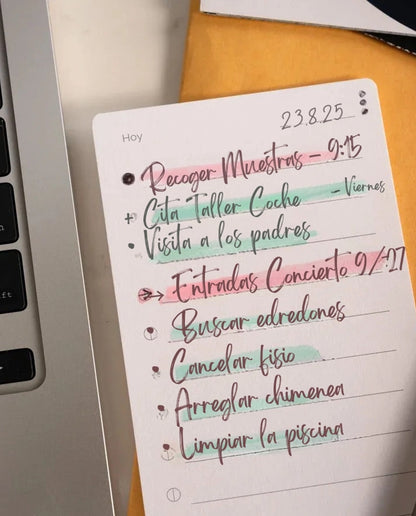 Hoy
23.8.25
Recoger Muestras – 9:15
+ Cita Taller Coche - Viernes
• Visita a los padres
Entradas Concierto 9/-27
Buscar edredones
Cancelar fisio
Arreglar chimenea
Limpiar la piscina
ft